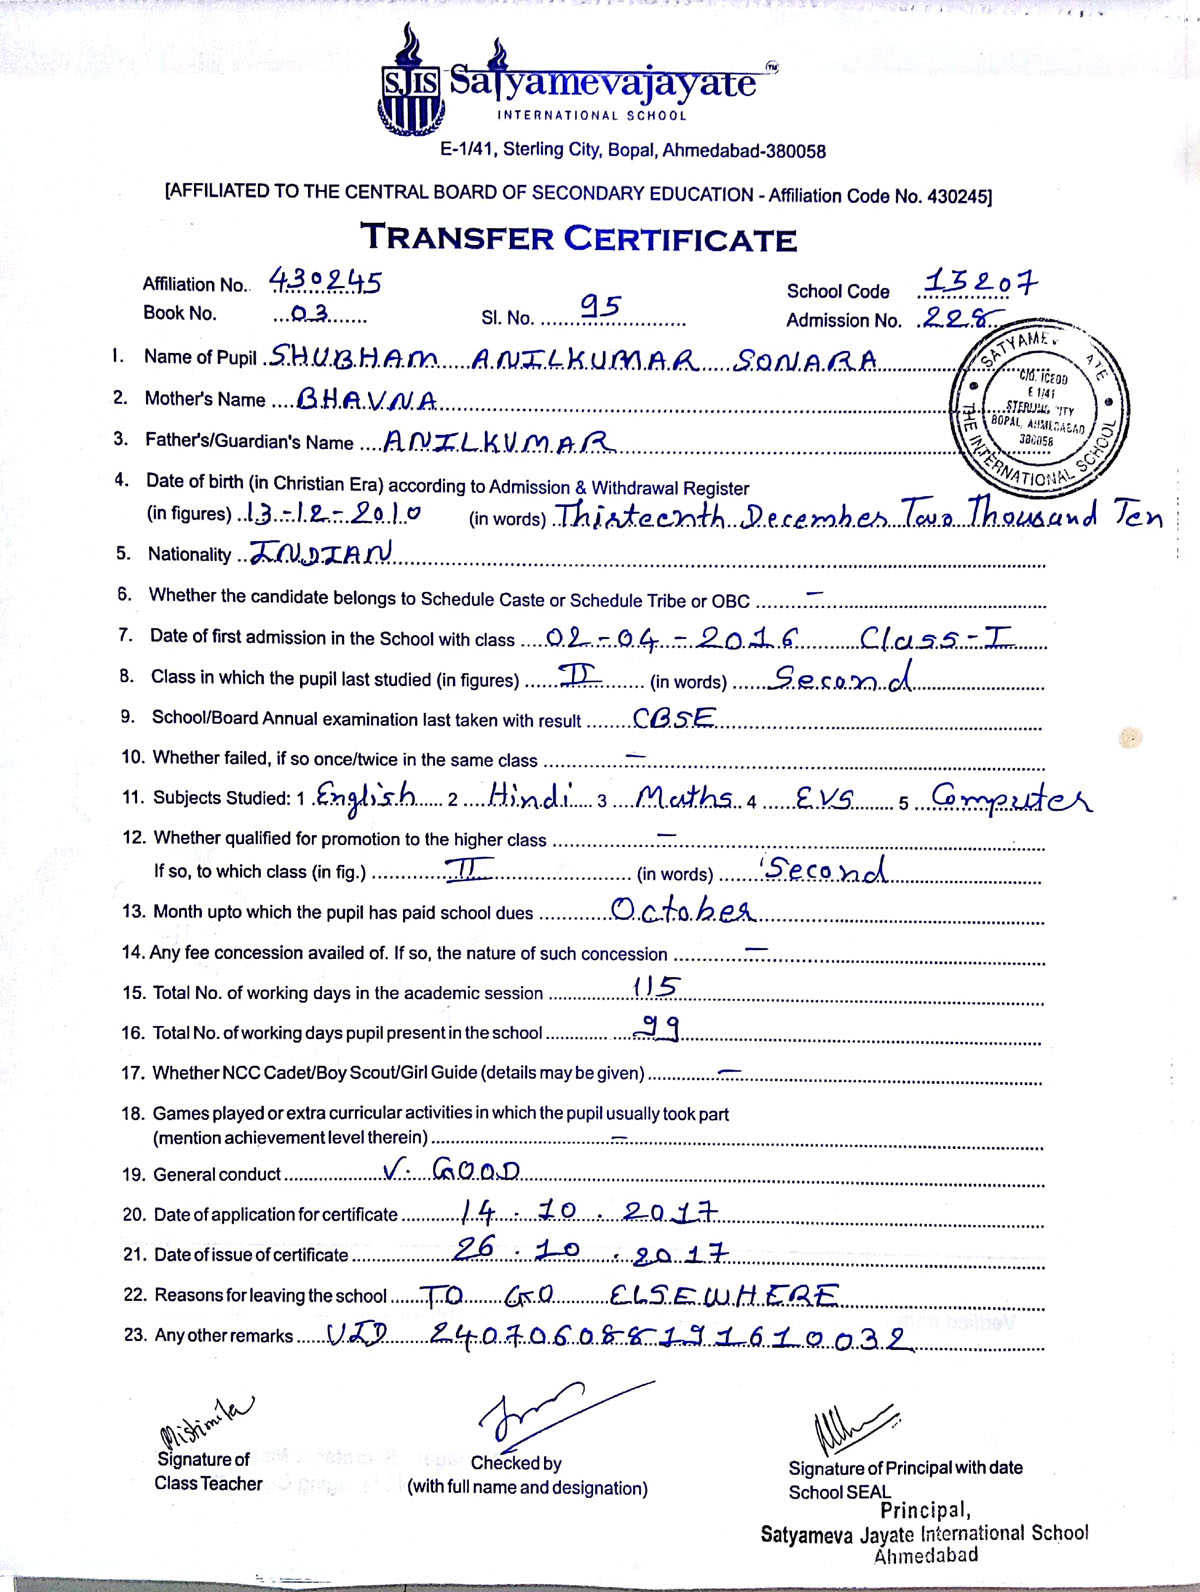 SJIS Satyamevajayate TM
INTERNATIONAL SCHOOL
E-1/41, Sterling City, Bopal, Ahmedabad-380058
[AFFILIATED TO THE CENTRAL BOARD OF SECONDARY EDUCATION - Affiliation Code No. 430245]
TRANSFER CERTIFICATE
Affiliation No. 430245 School Code 15207
Book No. 03 Sl. No. 95 Admission No. 228
1. Name of Pupil SHUBHAM ANILKUMAR SONARA
2. Mother's Name BHAVNA
3. Father's/Guardian's Name ANILKUMAR
SATYAMEV ATE THE INTERNATIONAL SCHOOL
C/O. ICEOD
E 1/41
STERLING CITY
BOPAL, AHMEDABAD
380058
4. Date of birth (in Christian Era) according to Admission & Withdrawal Register
(in figures) 13-12-2010 (in words) Thirteenth December Two Thousand Ten
5. Nationality INDIAN
6. Whether the candidate belongs to Schedule Caste or Schedule Tribe or OBC —
7. Date of first admission in the School with class 02-04-2016 Class-I
8. Class in which the pupil last studied (in figures) II (in words) Second
9. School/Board Annual examination last taken with result CBSE
10. Whether failed, if so once/twice in the same class —
11. Subjects Studied: 1 English 2 Hindi 3 Maths 4 EVS 5 Computer
12. Whether qualified for promotion to the higher class —
If so, to which class (in fig.) II (in words) Second
13. Month upto which the pupil has paid school dues October
14. Any fee concession availed of. If so, the nature of such concession —
15. Total No. of working days in the academic session 115
16. Total No. of working days pupil present in the school 99
17. Whether NCC Cadet/Boy Scout/Girl Guide (details may be given) —
18. Games played or extra curricular activities in which the pupil usually took part
(mention achievement level therein) —
19. General conduct V. GOOD
20. Date of application for certificate 14.10.2017
21. Date of issue of certificate 26.10.2017
22. Reasons for leaving the school TO GO ELSEWHERE
23. Any other remarks UID 240706088191610032
Mishmita
Signature of Checked by Signature of Principal with date
Class Teacher (with full name and designation) School SEAL
Principal,
Satyameva Jayate International School
Ahmedabad